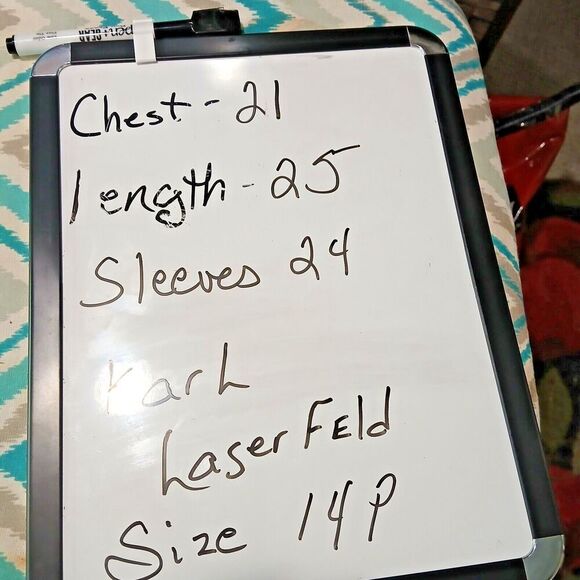 pen+GEAR
Chest - 21
length - 25
Sleeves 24
Karl
LaserFEld
Size 14P